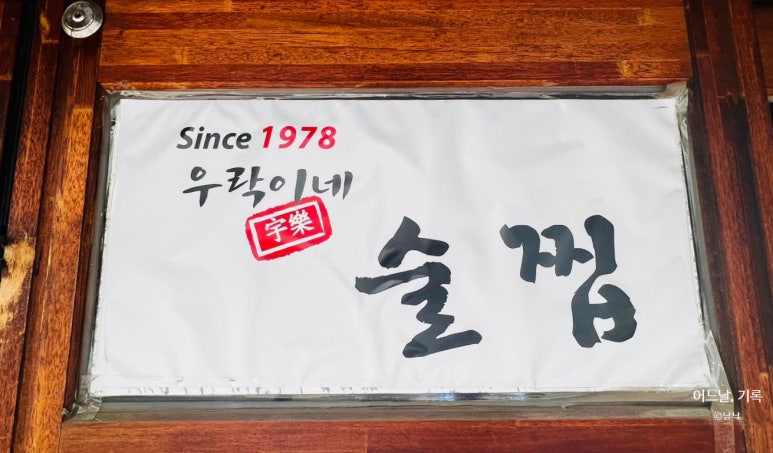 Since 1978
우락이네
宇樂
술찜
어느날, 기록
©남냑